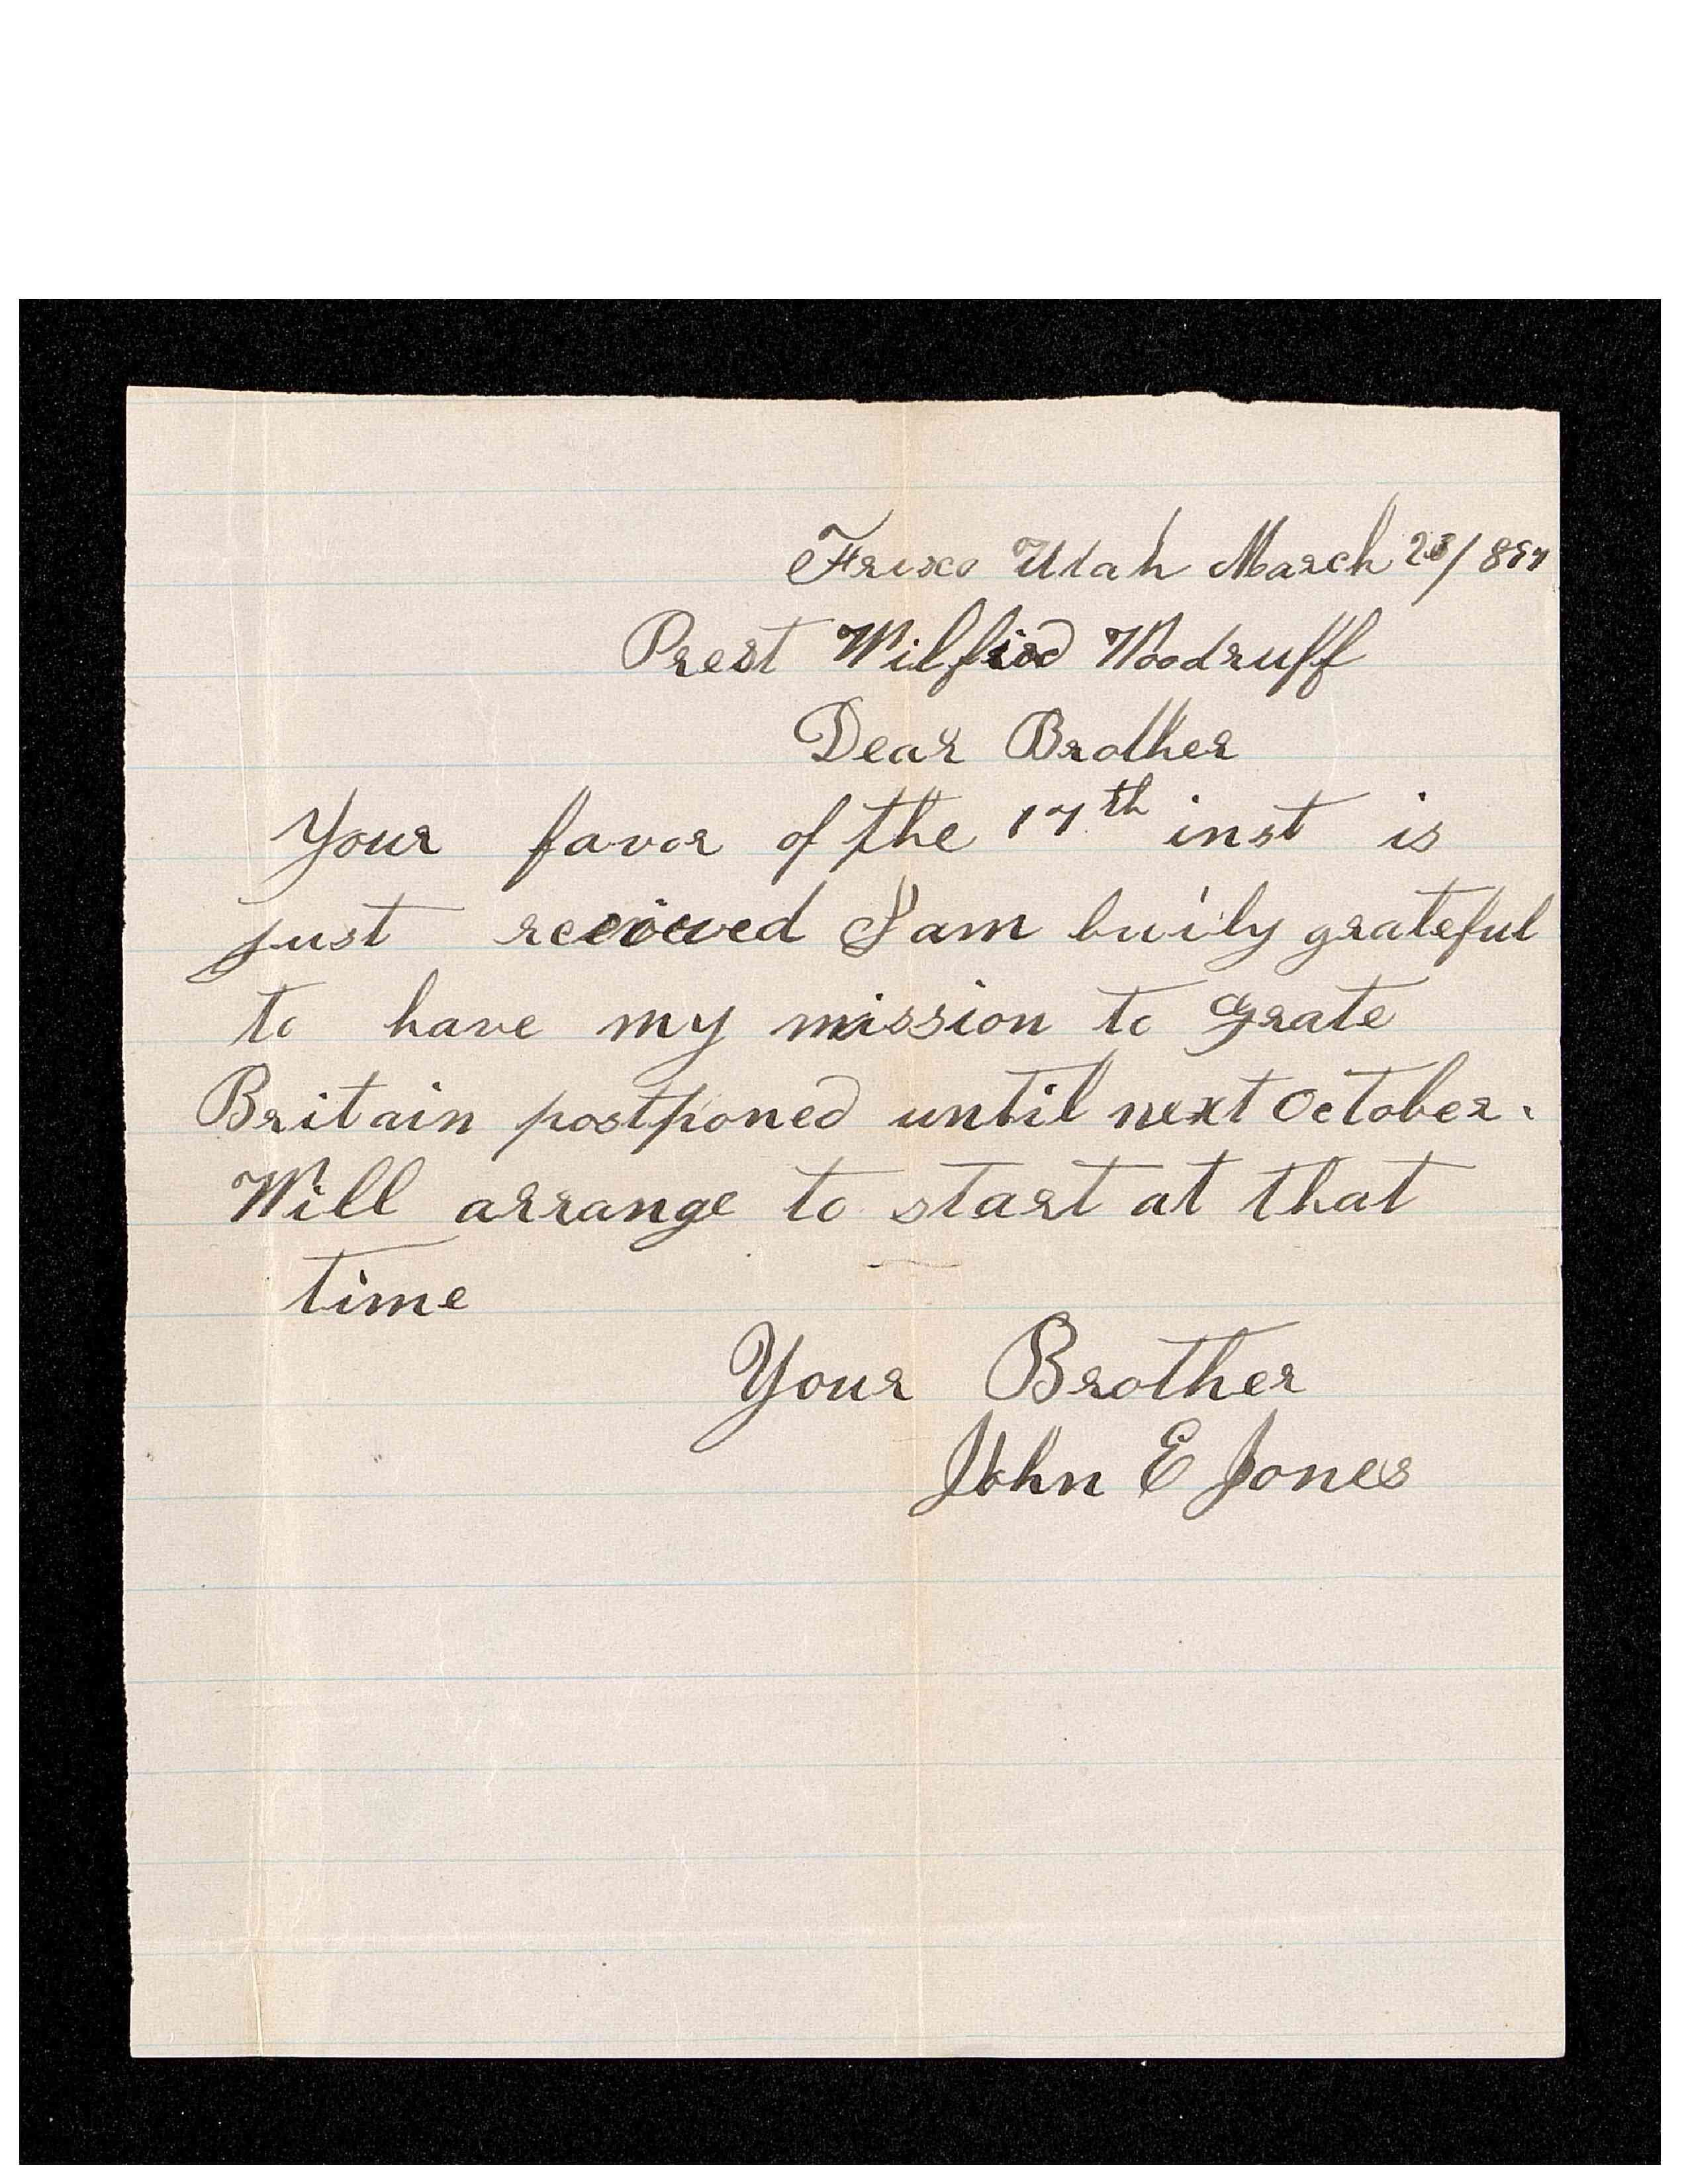 Frisco Utah March
Prest Wilfird Woodruff
Dear Brother
Your favor of the 17th inst is
just received I am grateful
to have my mission to Grate
Britain postponed until next October.
Will arrange to start at that
time
Your Brother
John E Jones